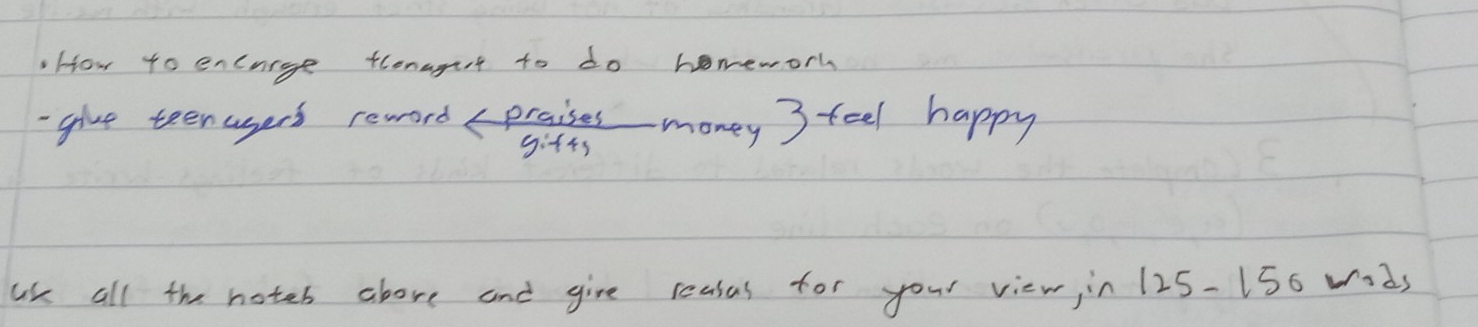 . How to encurge teenagert to do homework
- give teenagers reword < praises money } feel happy
gifts
use all the notes above and give reasas for your view, in 125 - 150 words